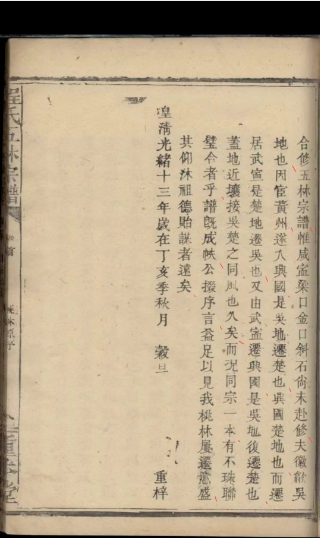 合修五林宗譜惟咸宣渠口金口斜石尚未赴修夫徽歙吳
地也因宦黃州遂入興國是吳地遷楚也興國楚地也而遷
居武宣是楚地遷吳也又由武宣遷興國是吳地後遷楚也
蓋地近壤接吳楚之同風也久矣而況同宗一本有不珠聯
璧合者乎譜既成帙公援序言益足以見我桃林屢遷愈盛
其仰沐祖德貽謀者遠矣
皇清光緒十三年歲在丁亥季秋月 穀旦 重梓
程氏五林宗譜